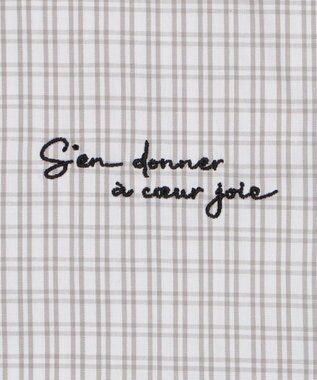 S'en donner
à cœur joie